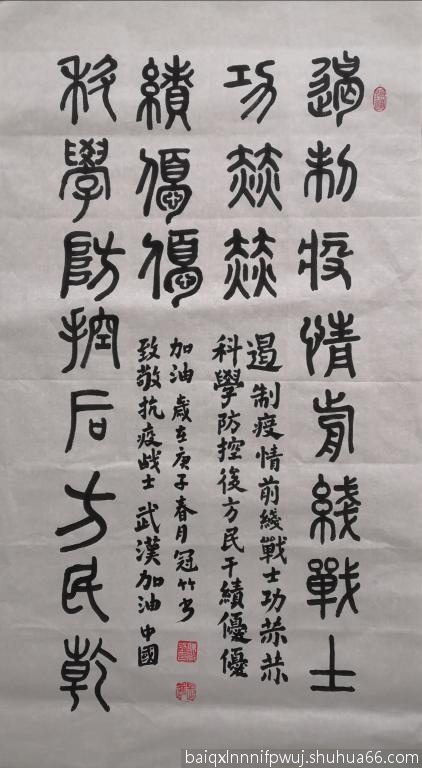 遏制疫情前綫戰士
功赫赫
科學防控后方民乾
績優優
遏制疫情前綫戰士功赫赫
科學防控後方民干績優優
致敬抗疫战士 武漢加油 中國
加油 歲在庚子春月冠竹书
baiqxlnnnifpwuj.shuhua66.com